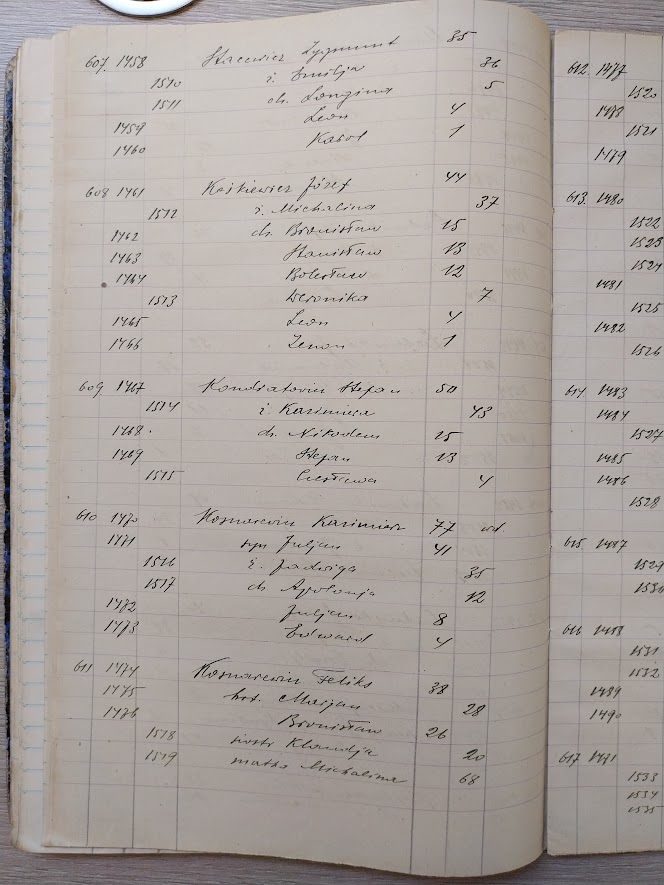 607. 1458 Stacewicz Zygmunt 35
1510 ż. Emilja 36
1511 ch. Longina 5
Leon 4
1459 Karol 1
1460
608 1461 Kaśkiewicz Józef 44
1512 ż. Michalina 37
1462 ch. Bronisław 15
1463 Stanisław 13
1464 Bolesław 12
1513 Weronika 7
1465 Leon 4
1466 Zenon 1
609. 1467 Stefan 50
1514 ż. Kazimiera 43
1468 ch. Nikodem 15
1469 Stefan 13
1515 Czesława 4
610 1470 Kazimierz 77 wd
1471 syn Juljan 41
1516 ż. Jadwiga 35
1517 ch. Apolonja 12
1472 Juljan 8
1473 Edward 4
611 1474 Feliks 38
1475 brt. Marjan 28
1476 Bronisław 26
1518 siostr Klaudja 20
1519 matka Michalina 68
612. 1477
1520
1478
1521
1479
613. 1480
1522
1523
1524
1481
1525
1482
1526
614 1483
1484
1527
1485
1486
1528
615 1487
1529
1530
616 1488
1531
1532
1489
1490
617 1491
1533
1534
1535